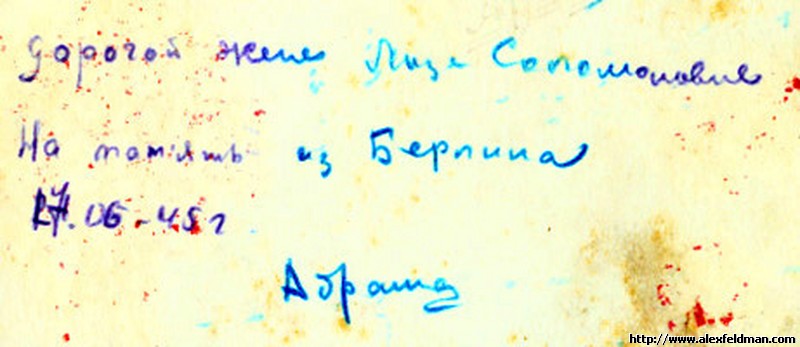 Дорогой жене Лизе Соломоновне
На память из Берлина
27.06-45г
Абраша
http://www.alexfeldman.com